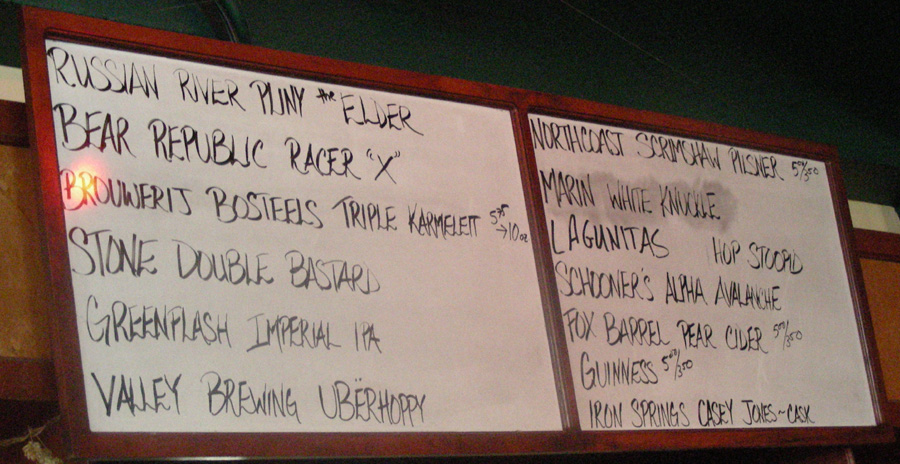 RUSSIAN RIVER PLINY the ELDER
BEAR REPUBLIC RACER "X"
BROUWERIJ BOSTEELS TRIPLE KARMELEIT 5.75 → 10 oz
STONE DOUBLE BASTARD
GREENFLASH IMPERIAL IPA
VALLEY BREWING UBËRHOPPY
NORTHCOAST SCRIMSHAW PILSNER 5.00/3.50
MARIN WHITE KNUCKLE
LAGUNITAS HOP STOOPID
SCHOONER'S ALPHA AVALANCHE
FOX BARREL PEAR CIDER 5.00/3.50
GUINNESS 5.00/3.50
IRON SPRINGS CASEY JONES ~ CASK